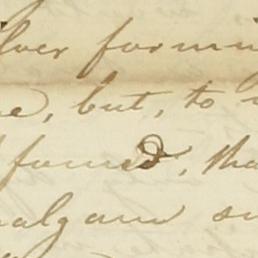 lver formin
e, but, to
formed, tha
malgam su